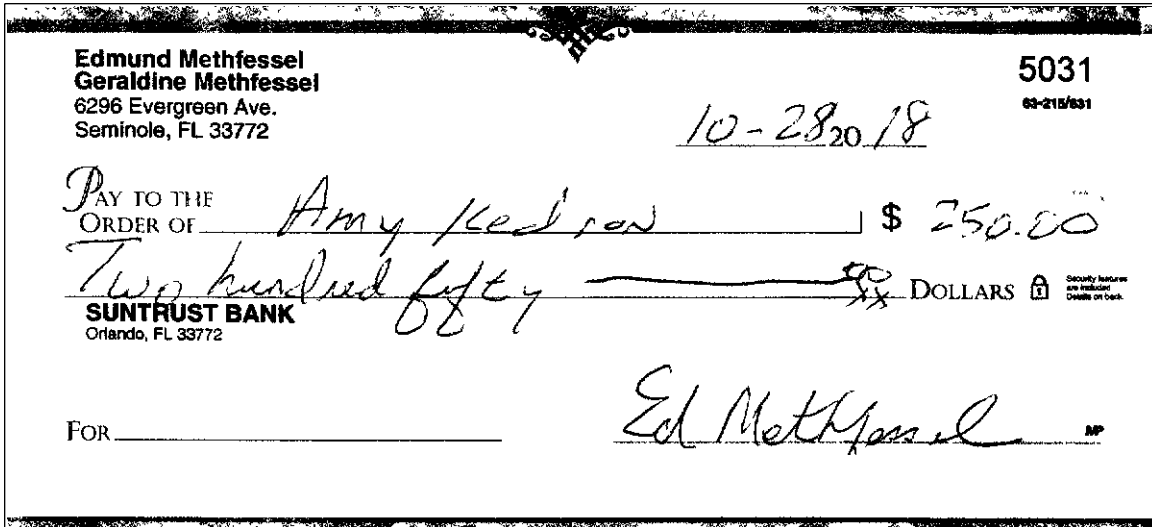 Edmund Methfessel
Geraldine Methfessel
6296 Evergreen Ave.
Seminole, FL 33772
5031
63-215/631
10-28 20 18
PAY TO THE
ORDER OF Amy Kedron $ 250.00
Two hundred fifty 00/xx DOLLARS
Security features
are included
Details on back.
SUNTRUST BANK
Orlando, FL 33772
FOR
Ed Methfessel
MP